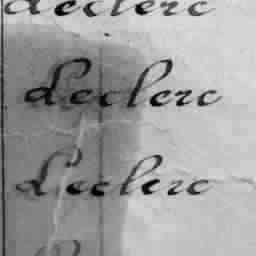 declerc
declerc
declerc